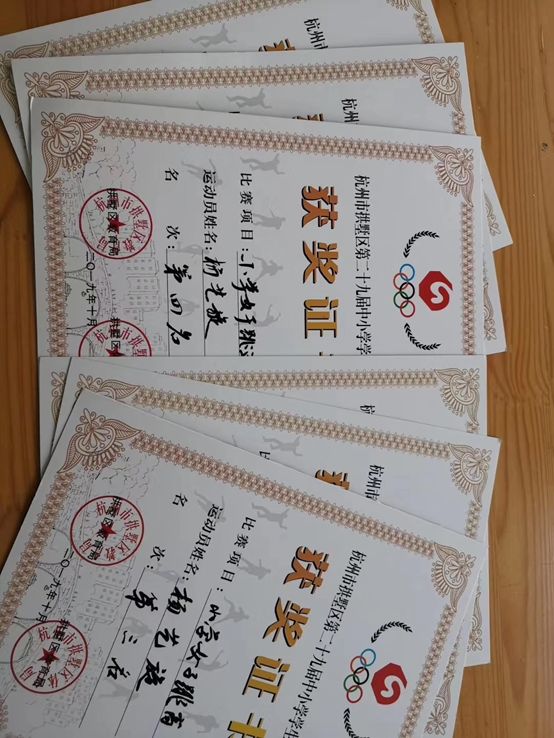 杭州市
杭州
杭州市拱墅区第二十九届中小学学
获奖证
比赛项目:小学女子跳
运动员姓名:杨艺旋
名次:第四名
拱墅区教育局
二〇一九年十月
杭
杭州市
获
杭州市拱墅区第二十九届中小学学生
获奖证书
比赛项目:小学女子跳高
运动员姓名:杨艺旋
名次:第三名
拱墅区教育局
二〇一九年十月